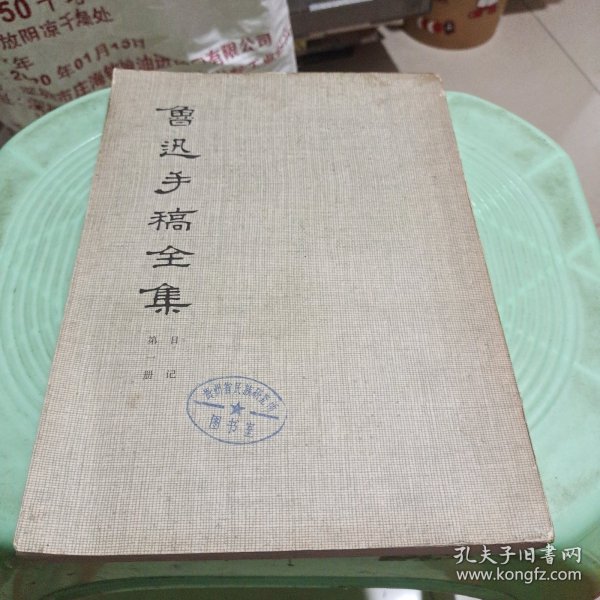 50千
放阴凉干燥处
年
20 年01月13日
有限公司
魯迅手稿全集
日记
第一册
贵州省民族研究所
图书室
孔夫子旧书网
www.kongfz.com